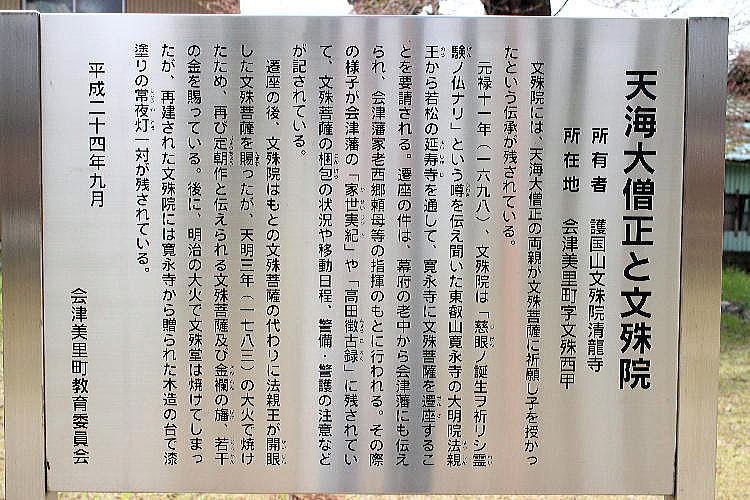 天海大僧正と文殊院
所有者　護国山文殊院清龍寺
所在地　会津美里町字文殊西甲
文殊院には、天海大僧正の両親が文殊菩薩に祈願し子を授かっ
たという伝承が残されている。
元禄十一年（一六九八）、文殊院は「慈眼ノ誕生ヲ祈リシ霊
験ノ仏ナリ」という噂を伝え聞いた東叡山寛永寺の大明院法親
王から若松の延寿寺を通して、寛永寺に文殊菩薩を遷座するこ
とを要請される。遷座の件は、幕府の老中から会津藩にも伝え
られ、会津藩家老西郷頼母等の指揮のもとに行われる。その際
の様子が会津藩の「家世実紀」や「高田徴古録」に残されてい
て、文殊菩薩の梱包の状況や移動日程、警備・警護の注意など
が記されている。
遷座の後、文殊院はもとの文殊菩薩の代わりに法親王が開眼
した文殊菩薩を賜ったが、天明三年（一七八三）の大火で焼け
たため、再び定朝作と伝えられる文殊菩薩及び金襴の旛、若干
の金を賜っている。後に、明治の大火で文殊堂は焼けてしまっ
たが、再建された文殊院には寛永寺から贈られた木造の台で漆
塗りの常夜灯一対が残されている。
平成二十四年九月
会津美里町教育委員会